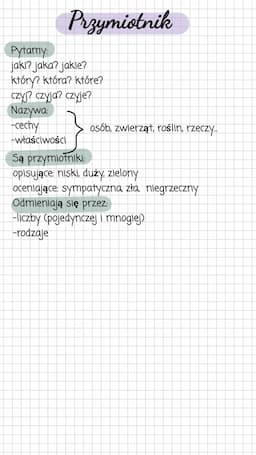 Przymiotnik
Pytamy:
jaki? jaka? jakie?
który? która? które?
czyj? czyja? czyje?
Nazywa:
-cechy
-właściwości
osób, zwierząt, roślin, rzeczy...
Są przymiotniki:
opisujące: niski, duży, zielony
oceniające: sympatyczna, zła, niegrzeczny
Odmieniają się przez:
-liczby (pojedynczej i mnogiej)
-rodzaje